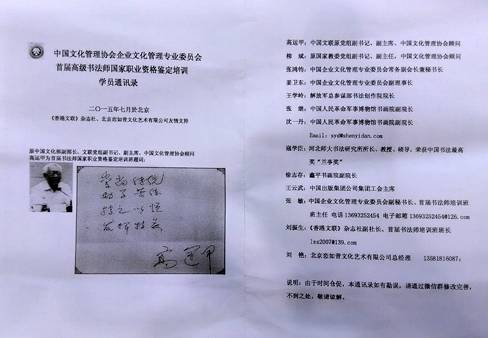 中国文化管理协会企业文化管理专业委员会
首届高级书法师国家职业资格鉴定培训
学员通讯录
二〇一五年七月於北京
《香港文联》杂志社、北京恋如普文化艺术有限公司友情支持
原中国文化部部长、文联党组副书记、副主席、中国文化管理协会顾问
高运甲为首届书法师国家职业资格鉴定培训班题词:
崇尚传统
持之以恒
发挥特长
高运甲
高运甲:中国文联原党组副书记、副主席、中国文化管理协会顾问
柳 斌:原国家教委党组副书记、副主任,中国文化管理协会顾问
张鸿钧:中国企业文化管理专业委员会常务副会长兼秘书长
姜卫东:中国企业文化管理专业委员会副理事长
王学岭:解放军总参谋部书法创作院院长
张 继:中国人民革命军事博物馆书画院副院长
沈一丹:中国人民革命军事博物馆书画院副院长
Email:syd@shenyidan.com
寇学臣:河北师大书法研究所所长、教授、硕导,荣获中国书法最高
奖"兰亭奖"
徐志存:鑫平书画院副院长
王云武:中国出版集团公司集团工会主席
张 敏:中国企业文化管理专业委员会副秘书长、首届书法师培训班
班主任 电话 13693252454 电子邮箱 13693252454@126.com
刘振生:《香港文联》杂志社副社长、首届书法师培训班班长
lzs2007@139.com
刘 艳:北京恋如普文化艺术有限公司总经理 13581816087;
说明:由于时间仓促,本通讯录如有勘误,请通过微信群修改完善,
不到之处,敬请谅解。